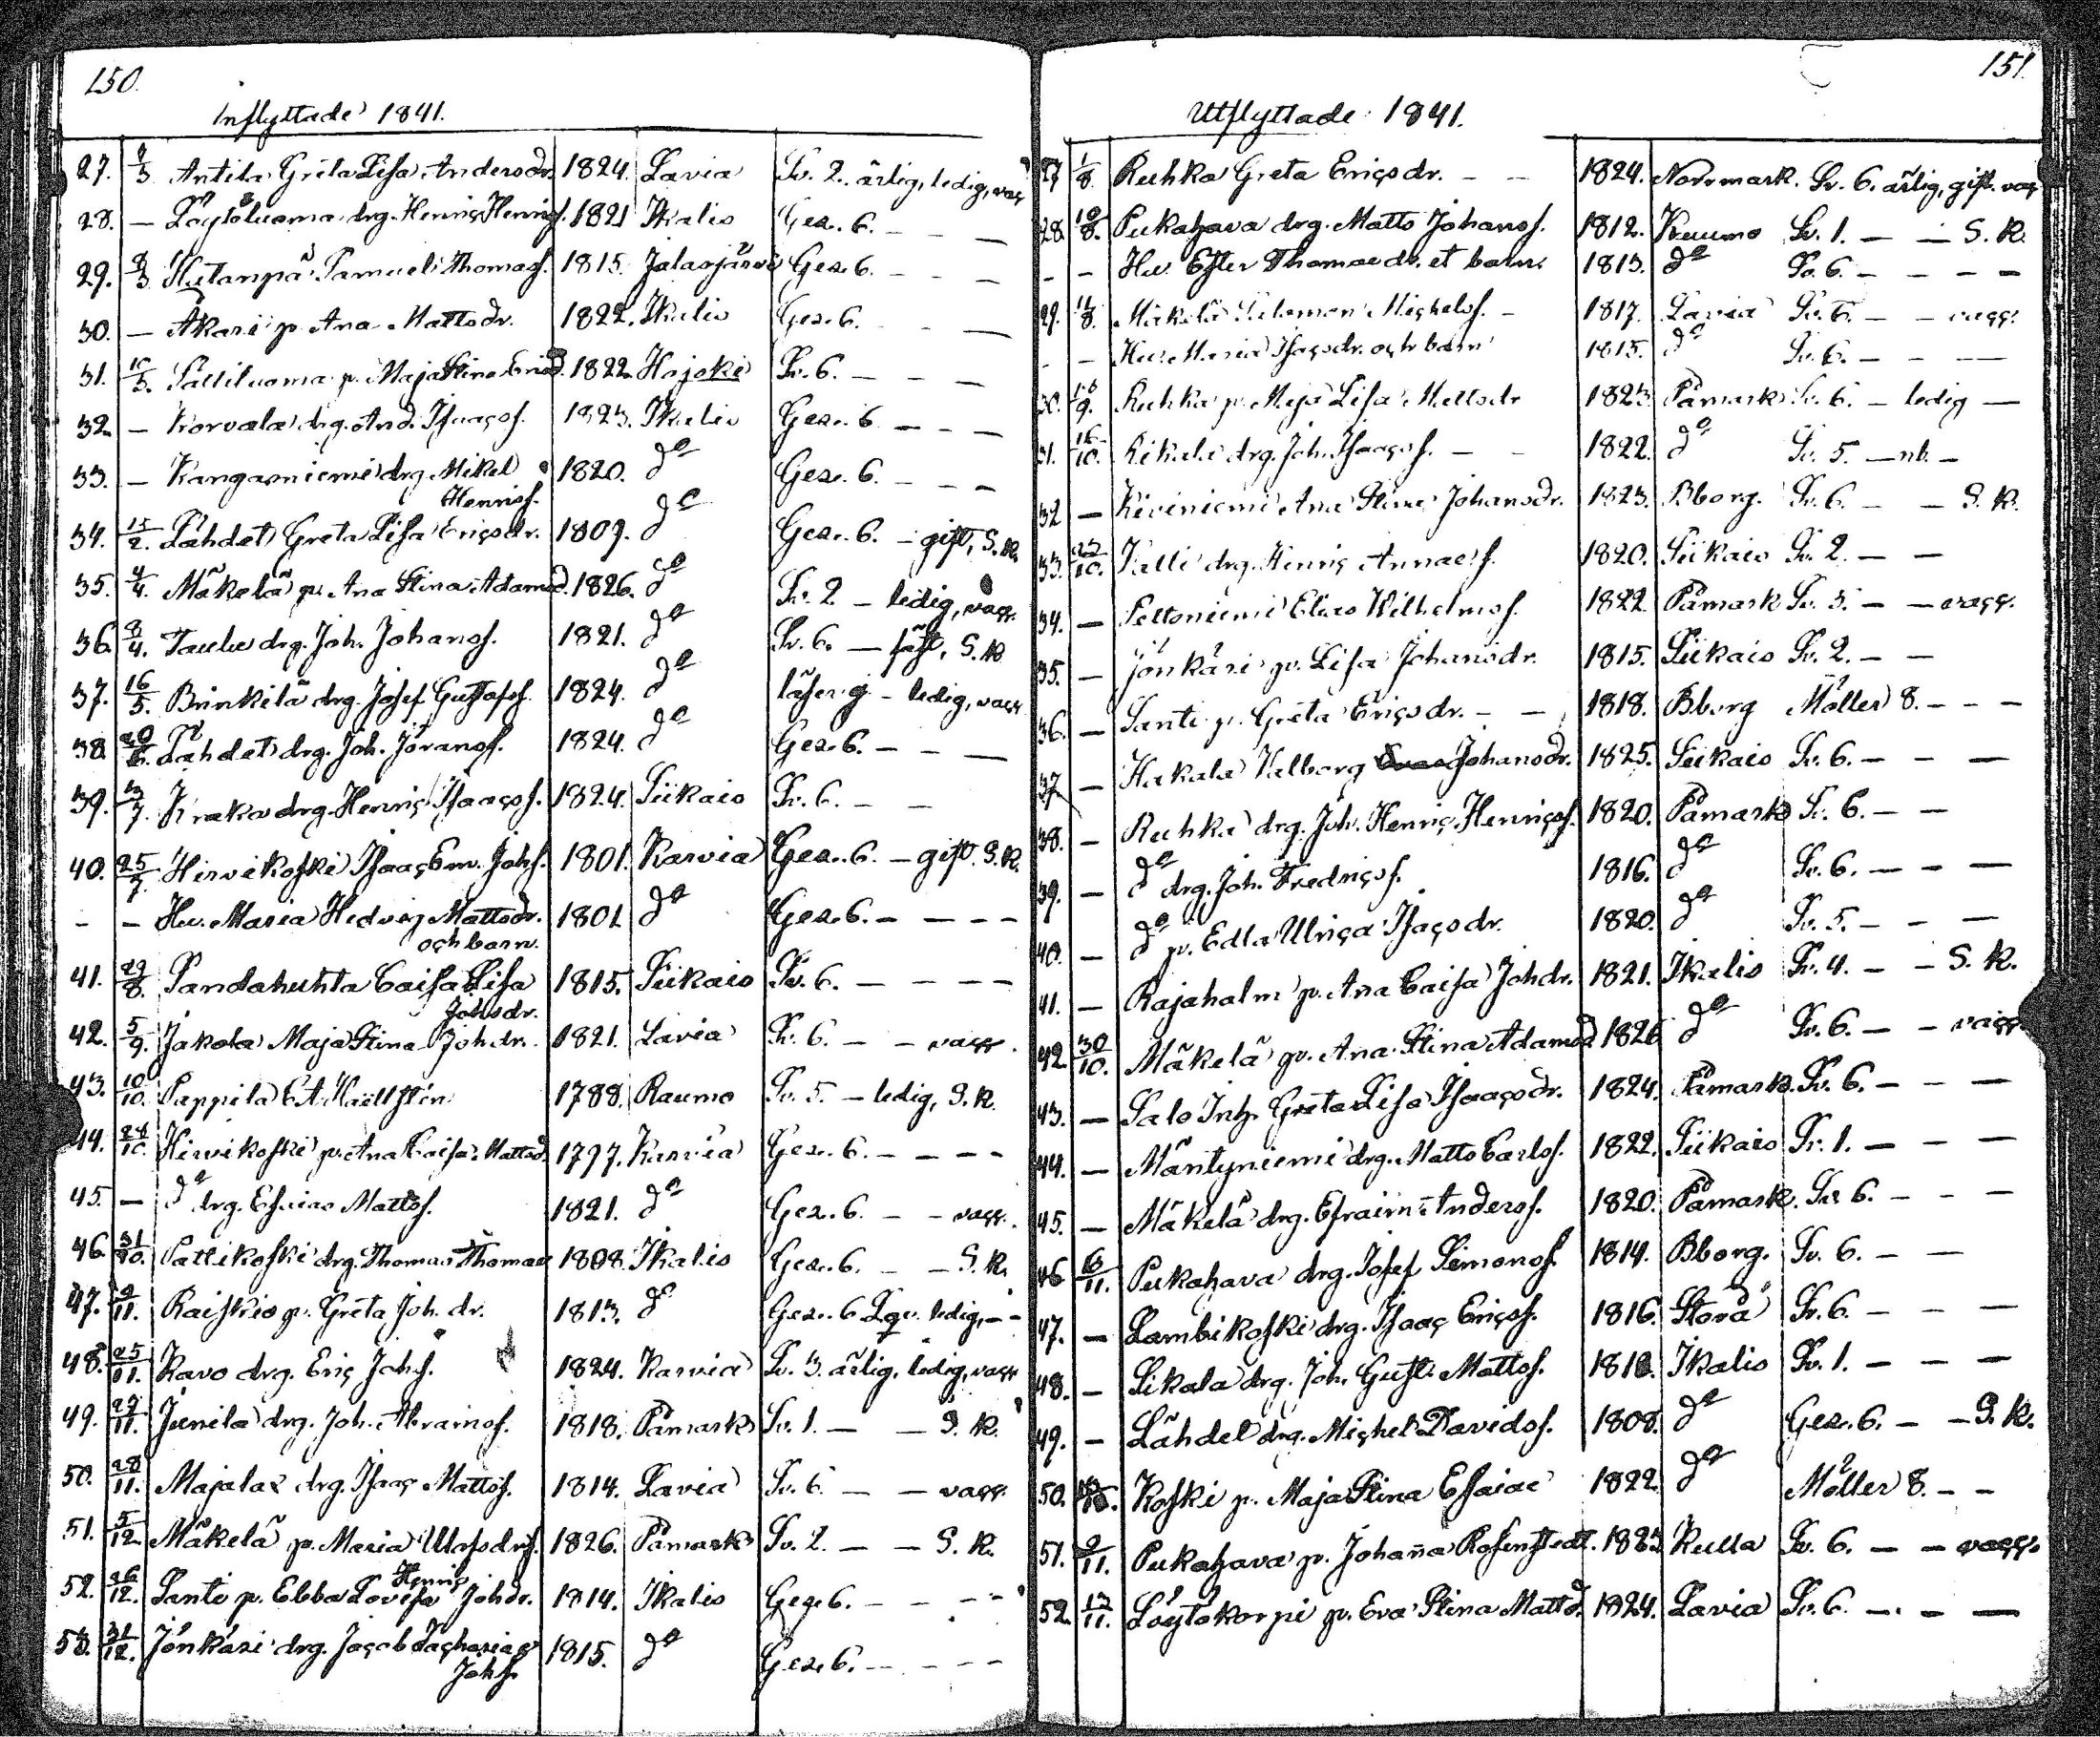 150.
Inflyttade 1841.
27. 8/3 Antila Greta Lisa Andersdr. 1824. Lavia Sv. 2. ärlig, ledig, vacc
28. — Löytöluoma drg. Henriç Henriçs. 1821 Ikalis Gez. 6. — —
29. 9/3 Hietanpä Samuel Thomass. 1815. Jalasjärvi Gez. 6 — —
30. — Akari p. Ana Mattsdr. 1822. Ikalis Gez. 6. — —
31. 15/3. Saltiluoma p. Maja Stina Ericsd. 1822. Hajoki Sv. 6. — — —
32. — Korvala drg. And. Isaaçs. 1823. Ikalis Gez. 6 — — —
33. — Kangasniemi drg. Mikel 1820. do Gez. 6. — — —
Henriçs.
34. 15/2. Lähdet Greta Lisa Eriçsdr. 1809. do Gez. 6. — gift, S.K.
35. 4/4. Mäkelä p. Ana Stina Adamsd. 1826. do Sv. 2 — ledig, vacc.
36. 8/4. Taulu drg. Joh. Johans. 1821. do Sv. 6. — fäst, S.K
37. 16/5. Brinkilä drg. Josef Gustafs. 1824. do läser ej — ledig, vacc
38 20/6. Lähdet drg. Joh. Jörans. 1824. do Gez. 6. — — —
39. 13/7. Kraka drg. Henriç Isaaçs. 1824. Siikais Sv. 6. — —
40. 25/7 Hirvikoski Isaaç Em. Johs. 1801. Karvia Gez. 6. — gift. S.K.
- — Hu. Maria Hedvig Mattsdr. 1801 do Gez. 6. — — — —
oçh barn.
41. 29/8. Sandahuhta Caisa Lisa 1815. Siikais Sv. 6. — — — —
Johsdr.
42. 5/9. Jakola Maja Stina Johdr. 1821. Lavia Sv. 6. — — vacc.
43. 10/10. Pappila 1788. Raumo Sv. 5. — ledig, S.K.
44. 24/10. Hirvikoski p. Ana Caisa Mattsd. 1797. Karvia Gez. 6. — — — —
45. — do drg. Esaias Matts. 1821. do Gez. 6. — — vacc.
46. 31/10. Pattikoski drg. Thomas Thomae 1808. Ikalis Gez. 6. — — S.K.
47. 9/11. Raiskio p. Greta Joh. dr. 1813. do Gez. 6. ledig, — -
48. 25/11. Kavo drg. Eriç Johs. 1824. Karvia Sv. 3. ärlig, ledig, vacc
49. 27/11. Junila drg. Joh. Abrams. 1818. Påmark Sv. 1. — — S.K.
50. 28/11. Majalax drg. Isaaç Matts. 1814. Lavia Sv. 6 — — vacc.
51. 5/12. Mäkelä p. Maria 1826. Påmark Sv. 2. — — S.K.
Henriç
52. 26/12. Santi p. Ebba Lovisa Johdr. 1814. Ikalis Gez. 6. — — — -
53. 31/12. Jönkäri drg. Jaçob Saçharias 1815. do Gez. 6. — — — -
Johs.
151.
Utflyttade 1841.
27 1/8. Ruhka Greta Eriçsdr. — — 1824. Norrmark. Sv. 6. ärlig, gift. vac
28. 10/8. Pukahava drg. Matts Johans. 1812. Kuumo Sv. 1. — — S.K.
- — Hu. Ester Thomaedr. et barn. 1813. do Sv. 6. — — — —
29. 11/8. Mäkelä Salomon Miçhels. — 1817. Lavia Sv. 6. — — vacc.
- — Hu. Maria Isaçsdr. och barn 1815. do Sv. 6. — — —
30. 18/9. Ruhka p. Maja Lisa Mattsdr 1823. Påmark Sv. 6. — ledig —
31. 16/10. Kikali drg. Joh. Isaaçs. — — 1822. do Sv. 5. — nb. —
32 — Kiviniemi Ana Stina Johansdr. 1823. Bborg. Sv. 6. — — S.K.
33. 25/10. Kalli drg. Henriç Annaes. 1820. Siikais Sv. 2. — —
34. — Peltoniemi Elias Wilhelms. 1822. Påmark Sv. 3. — — vacc.
35. — Jönkäri p. Lisa Johansdr. 1815. Siikais Sv. 2. — —
36. — Santi p. Greta Eriçsdr. — — 1818. Bborg Möller 8. — — —
37 — Hakala Valborg Johansdr. 1825. Siikais Sv. 6. — — —
38. — Ruhka drg. Joh. Henriç Henriçs. 1820. Påmark Sv. 6. — —
39. — do drg. Joh. Fredriçs. 1816. do Sv. 6. — — —
40. — do p. Edla Ulriça Isaçsdr. 1820. do Sv. 5. — — —
41. — Rajahalm p. Ana Caisa Johdr. 1821. Ikalis Sv. 4. — — S.K.
42 30/10. Mäkelä p. Ana Stina Adamsd 1826 do Sv. 6. — — vacc
43. — Salo Inh. Greta Lisa Isaaçsdr. 1824. Påmark. Sv. 6. — — —
44. — Mäntyniemi drg. Matts Carls. 1822. Siikais Sv. 1. — — —
45. — Mäkelä drg. Efraim Anders. 1820. Påmark. Sv. 6. — — —
46 6/11. Pukahava drg. Josef Simons. 1814. Bborg. Sv. 6. — —
47. — Lambikoski drg. Isaaç Eriçs. 1816. Storå Sv. 6. — — —
48. — Sikala drg. Joh. Gust. Matts. 1818. Ikalis Sv. 1. — — —
49. — Lähdet drg. Miçhel Davids. 1808. do Gez. 6. — — S.K.
50. Koski p. Maja Stina Esaiae 1822. do Möller 8. — —
51. 9/11. Pukahava p. Johaña Rosenstedt. 1823. Kulla Sv. 6. — — vacc.
52 12/11. Löytökorpi p. Eva Stina Mattsd. 1824. Lavia Sv. 6. — — —